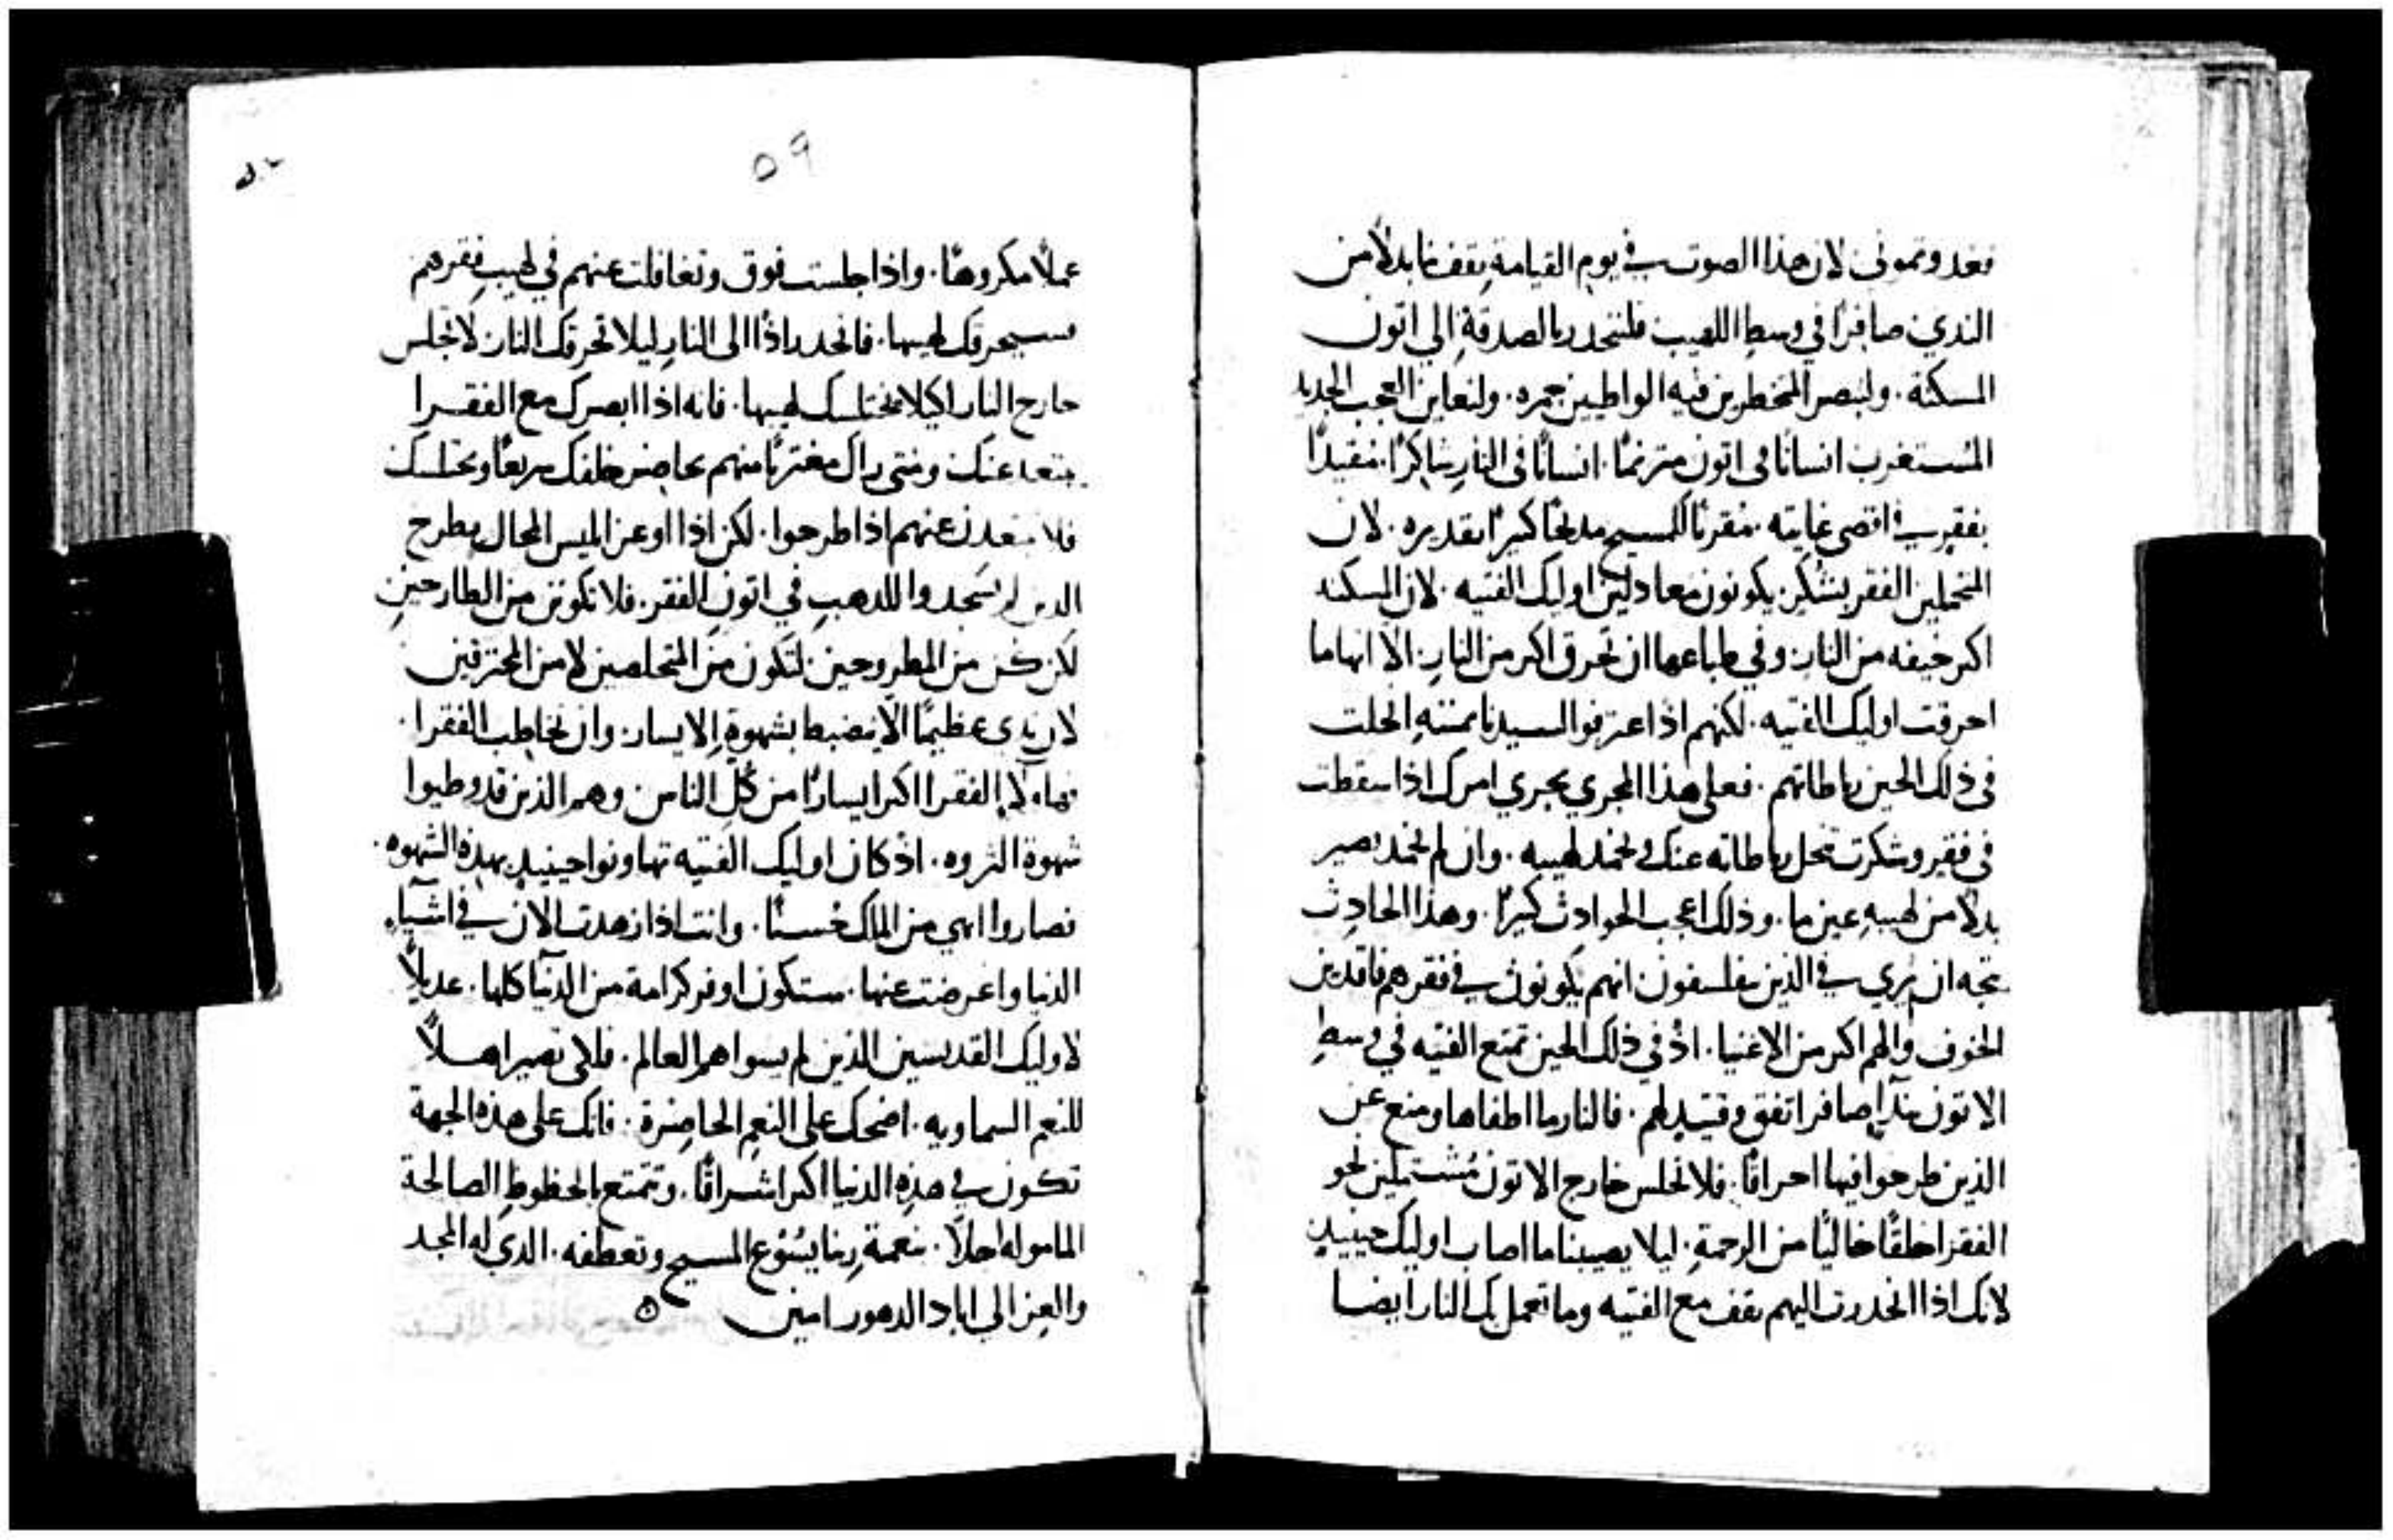 فغدوتموني لان هذا الصوت في يوم القيامة يقفنا بدلاً من
الندي صافرًا في وسط اللهيب فلننحدر بالصدقة الي اتون
المسكنة. ولنبصر المخطرين فيه الواطيين جمره. ولنعاين العجب الجديد
المستغرب انسانًا في اتون مترنمًا. انسانًا في النار شاكرًا. مقيدًا
بفقرٍ في اقصى غايته. مقربًا للمسيح مديحًا كبيرًا بقديره. لان
المتحملين الفقر بشكرٍ يكونون معادلين اوليك الفتيه. لان المسكنه
اكبر خيفه من النار. وفي طباعها ان تحرق اكبر من النار. الا انها ما
احرقت اوليك الفتيه. لكنهم اذ اعترفوا لسيدنا بمنتهِ انحلت
في ذلك الحين رباطاتهم. فعلى هذا المجري يجري امرك اذا سقطت
في فقر وشكرت تنحل رباطاته عنك ويخمد لهيبه. وان لم يخمد يصير
بدلا من لهيبهِ عين ما. وذلك اعجب الحوادث كثيرًا. وهذا الحادث
يتجه ان يُري في الذين يفلسفون انهم يكونون في فقرهم فاقدين
الخوف والهم اكبر من الاغنيا. اذ في ذلك الحين تمتع الفتيه في وسط
الاتون بندًا صافر اتفق وقتيد لهم. فالنار ما اطفاها ومنع عن
الذين طرحوا فيها احراقًا. فلا نجلس خارج الاتون مُشتملين نحو
الفقرا خلقًا خاليًا من الرحمة. ليلا يصيبنا ما اصاب اوليك حينيد
لانك اذا انحدرت اليهم تقف مع الفتيه وما تعمل بك النار ايضا
٥٩
عملاً مكروهًا. واذا جلست فوق وتغافلت عنهم في لهيب فقرهم
فسيحرقك لهيبها. فانحدر اذًا الى النار ليلا تحرقك النار. لا تجلس
خارج النار لكيلا يختلسك لهيبها. فانه اذا ابصرك مع الفقرا
يبتعد عنك ومتى راك مغتربًا منهم يحاضر خلفك سريعًا ويختلسك
فلا تبتعدن عنهم اذا طرحوا. لكن اذا اوعز ابليس المحال بطرح
الدين لم يسجدوا للدهب في اتون الفقر. فلا تكونن من الطارحين
لكن كن من المطروحين. لتكون من المتخلصين لا من المحترقين
لان يدي عظيمًا الا ينضبط بشهوة الايسار. وان يخاطب الفقرا.
فهاولاء الفقرا اكبر ايسارًا من كل الناس. وهم الذين قد وطيوا
شهوة الثروه. اذ كان اوليك الفتيه تهاونوا حينيد بهذه الشهوه.
فصاروا ابهي من الملك حُسنًا. وانت اذا زهدت الان في اشياء
الدنيا واعرضت عنها. ستكون اوفر كرامة من الدنيا كلها. عديلاً
لاوليك القديسين الذين لم يسواهم العالم. فلكي تصير اهلاً
للنعم السماويه. اضحك على النعم الحاضرة. فانك على هذه الجهة
تكون في هذه الدنيا اكبر اشراقًا. وتتمتع بالحظوظ الصالحة
الماموله اجلاً. بنعمة ربنا يسُوع المسيح وتعطفه. الدي له المجد
والعز الي اباد الدهور امين